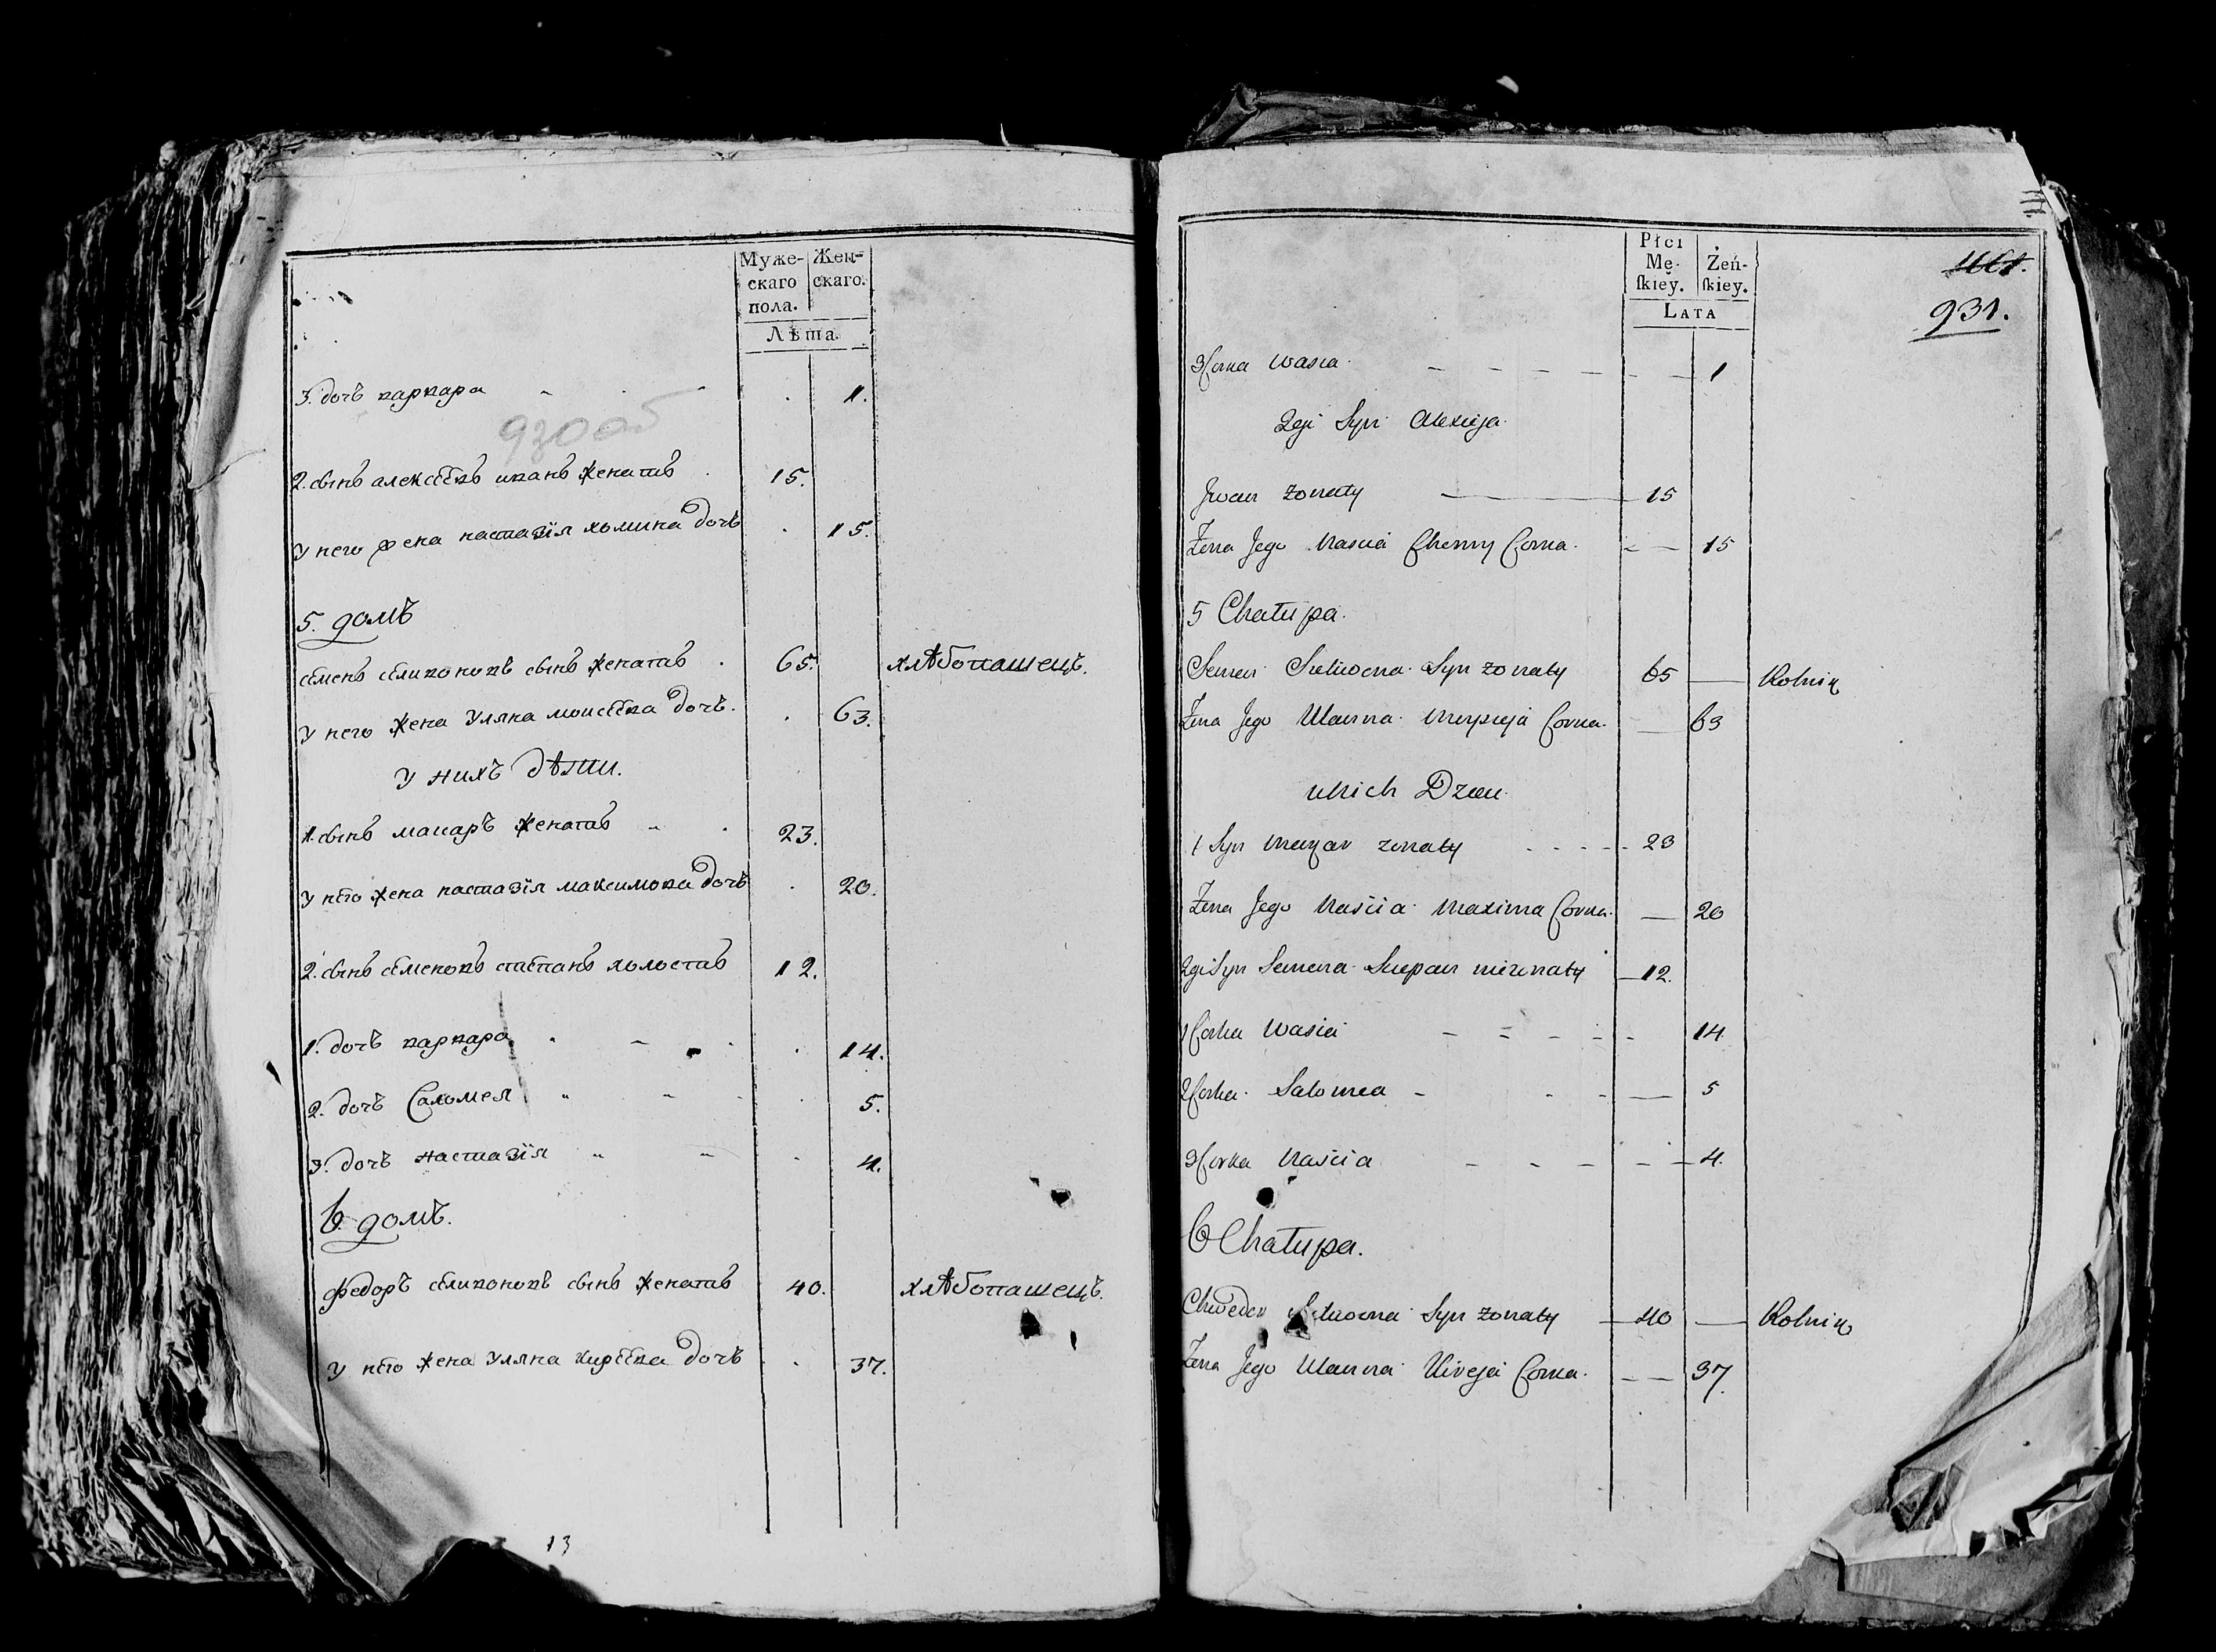 Муже-
скаго
пола.
Жен-
скаго.
Лѣта.
3. дочъ варвара 1.
930 об
2. сынъ алексѣевъ иванъ женатъ 15.
У него жена настазїя хомина дочъ 15.
5. домъ
семенъ селивоновъ сынъ женатъ 65. хлѣбопашецъ.
У него жена Уляна моисеева дочъ. 63.
У нихъ дѣти.
1. сынъ макаръ женатъ 23.
У него жена настазїя максимова дочъ 20.
2. сынъ семеновъ степанъ холостъ 12.
1. дочъ варвара 14.
2. дочъ Саломея 5.
3. дочъ настазїя 4.
6. домъ.
Федоръ селивоновъ сынъ женатъ 40. хлѣбопашецъ.
У него жена Уляна киреева дочъ 37.
13
Płci
Mę-
ſkiey.
Żeń-
ſkiey.
Lata
931.
3 Corka Wasia 1
2gi Syn Alexieja
Jwan Zonaty 15
Zona Jego Nascia Chomy Corka 15
5 Chałupa.
Semen Seliwona Syn zonaty 65 Rolnik
Zona Jego Ulanna Corka 63
unich Dzieci
1 Syn Makar zonaty 23
Zona Jego Naścia Maxima Corka 20
2gi Syn Semena Stiepan niezonaty 12.
1 Corka Wasia 14
2 Corka Salomea 5
3 Corka Naścia 4.
6 Chałupa.
Chwedor Seliwona Syn zonaty 40 Rolnik
Zona Jego Ulanna Kireja Corka 37.